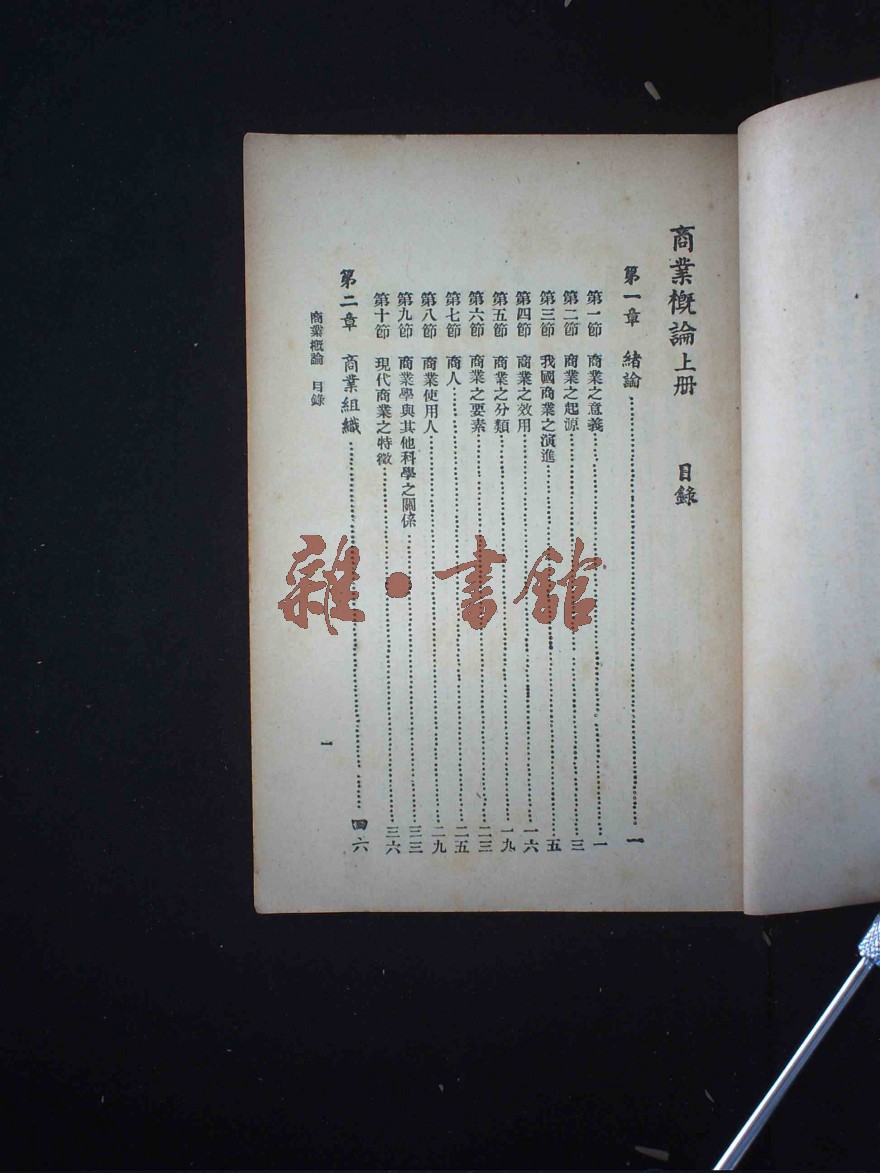 商業概論上册　目錄
第一章　緒論……一
第一節　商業之意義……一
第二節　商業之起源……三
第三節　我國商業之演進……五
第四節　商業之效用……一六
第五節　商業之分類……一九
第六節　商業之要素……二三
第七節　商人……二五
第八節　商業使用人……二九
第九節　商業學與其他科學之關係……三三
第十節　現代商業之特徵……三六
第二章　商業組織……四六
商業概論　目錄
一
雜·書館